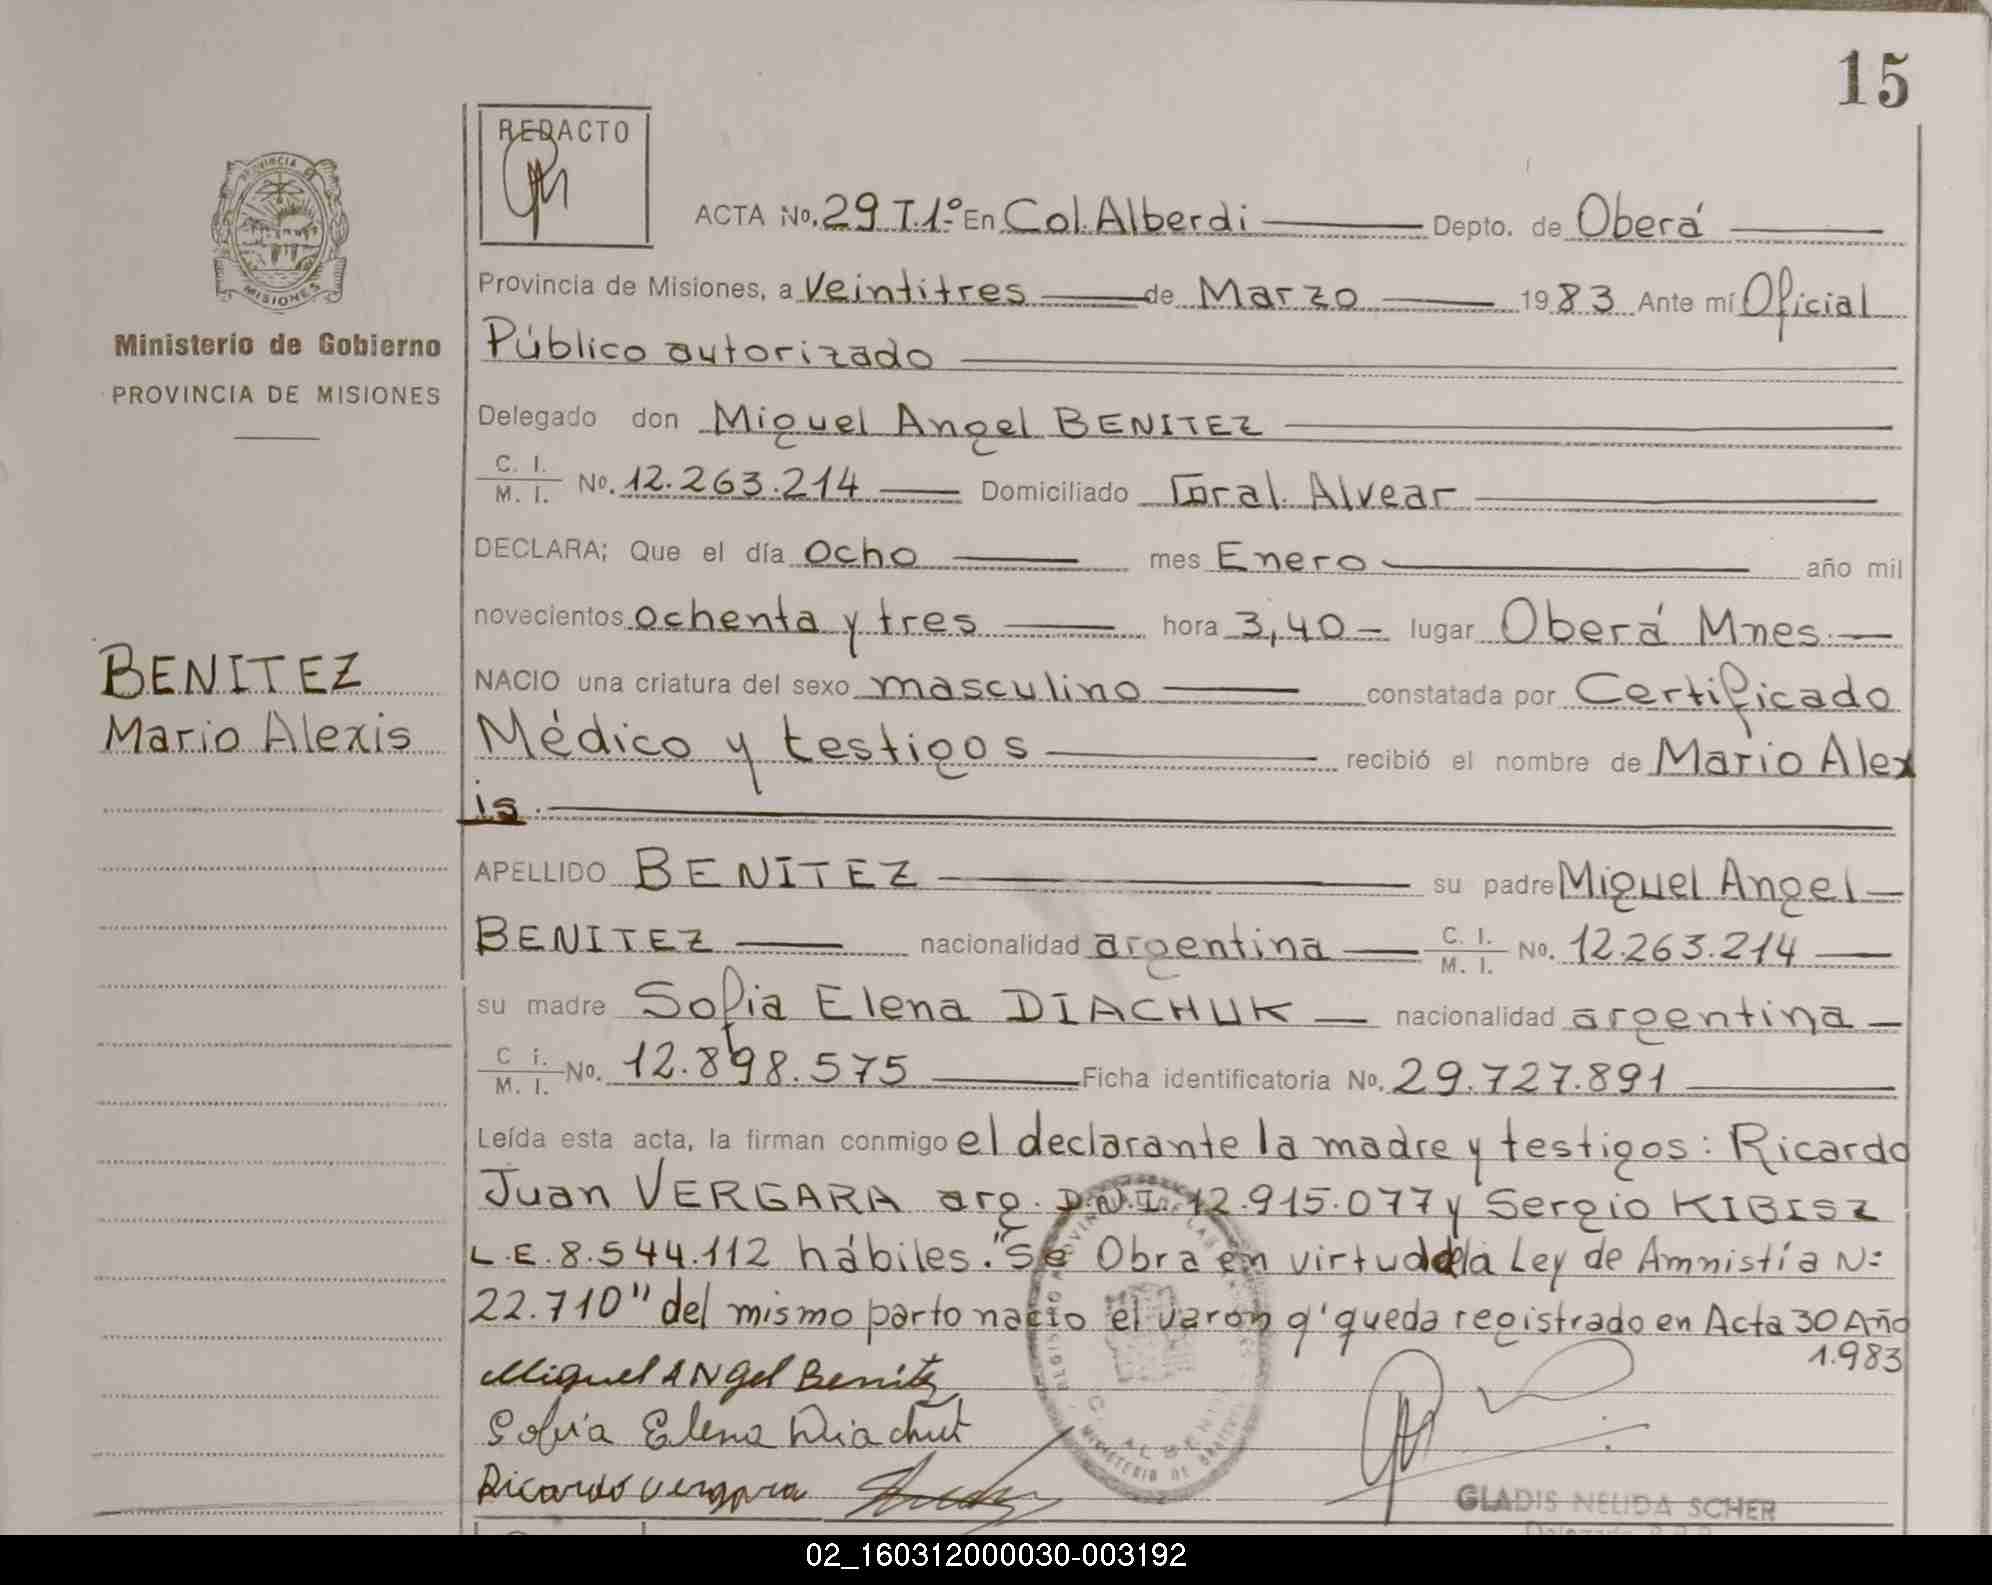 15
REDACTO
ACTA No. 29 T.1º En Col. Alberdi Depto. de Oberá
PROVINCIA DE
MISIONES
Provincia de Misiones, a Veintitres de Marzo 1983 Ante mí Oficial
Ministerio de Gobierno
Público autorizado
PROVINCIA DE MISIONES
Delegado don Miguel Angel BENITEZ
C. I.
M. I. No. 12.263.214 Domiciliado Gral. Alvear
DECLARA; Que el día Ocho mes Enero año mil
novecientos ochenta y tres hora 3,40 lugar Oberá Mnes.
BENITEZ
NACIO una criatura del sexo masculino constatada por Certificado
Mario Alexis
Médico y testigos recibió el nombre de Mario Alex
is.
APELLIDO BENITEZ su padre Miguel Angel
BENITEZ nacionalidad argentina C. I. M. I. No. 12.263.214
su madre Sofia Elena DIACHUK nacionalidad argentina
C i. M. I. No. 12.898.575 Ficha identificatoria No. 29.727.891
Leída esta acta, la firman conmigo el declarante la madre y testigos: Ricardo
Juan VERGARA arg. D.N.I. 12.915.077 y Sergio KIBISZ
L.E. 8.544.112 hábiles. "Se Obra en virtud de la Ley de Amnistía Nº
22.710" del mismo parto nacio el varon q' queda registrado en Acta 30 Año
1.983
Miguel ANgel Benitez
Sofia Elena Diachuk
Ricardo Vergara
GLADIS NELIDA SCHER
02_160312000030-003192